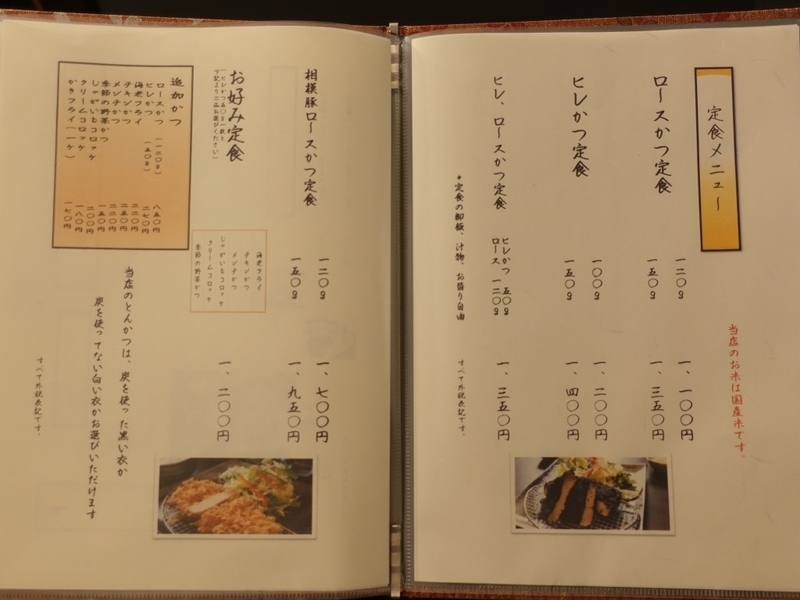 定食メニュー
当店のお米は国産米です。
ロースかつ定食
一二〇g 一、一〇〇円
一五〇g 一、三五〇円
ヒレかつ定食
一〇〇g 一、二〇〇円
一五〇g 一、四〇〇円
ヒレ、ロースかつ定食
ヒレかつ 五〇g
ロース 一二〇g
一、三五〇円
*定食の御飯、汁物、お替り自由
すべて外税表記です。
相模豚ロースかつ定食
一二〇g 一、七〇〇円
一五〇g 一、九五〇円
お好み定食
(ヒレかつ五〇g一枚と
下記より二品お選びください)
一、二〇〇円
海老フライ
チキンかつ
メンチかつ
じゃがいもコロッケ
クリームコロッケ
季節の野菜かつ
追加かつ
ロースかつ (一二〇g) 八五〇円
ヒレかつ (五〇g) 二七〇円
海老フライ 二二〇円
チキンかつ 二五〇円
メンチかつ 二二〇円
季節の野菜かつ 一五〇円
じゃがいもコロッケ 二〇〇円
クリームコロッケ 一八〇円
かきフライ(一ケ) 一七〇円
当店のとんかつは、炭を使った黒い衣か
炭を使ってない白い衣かお選びいただけます
すべて外税表記です。